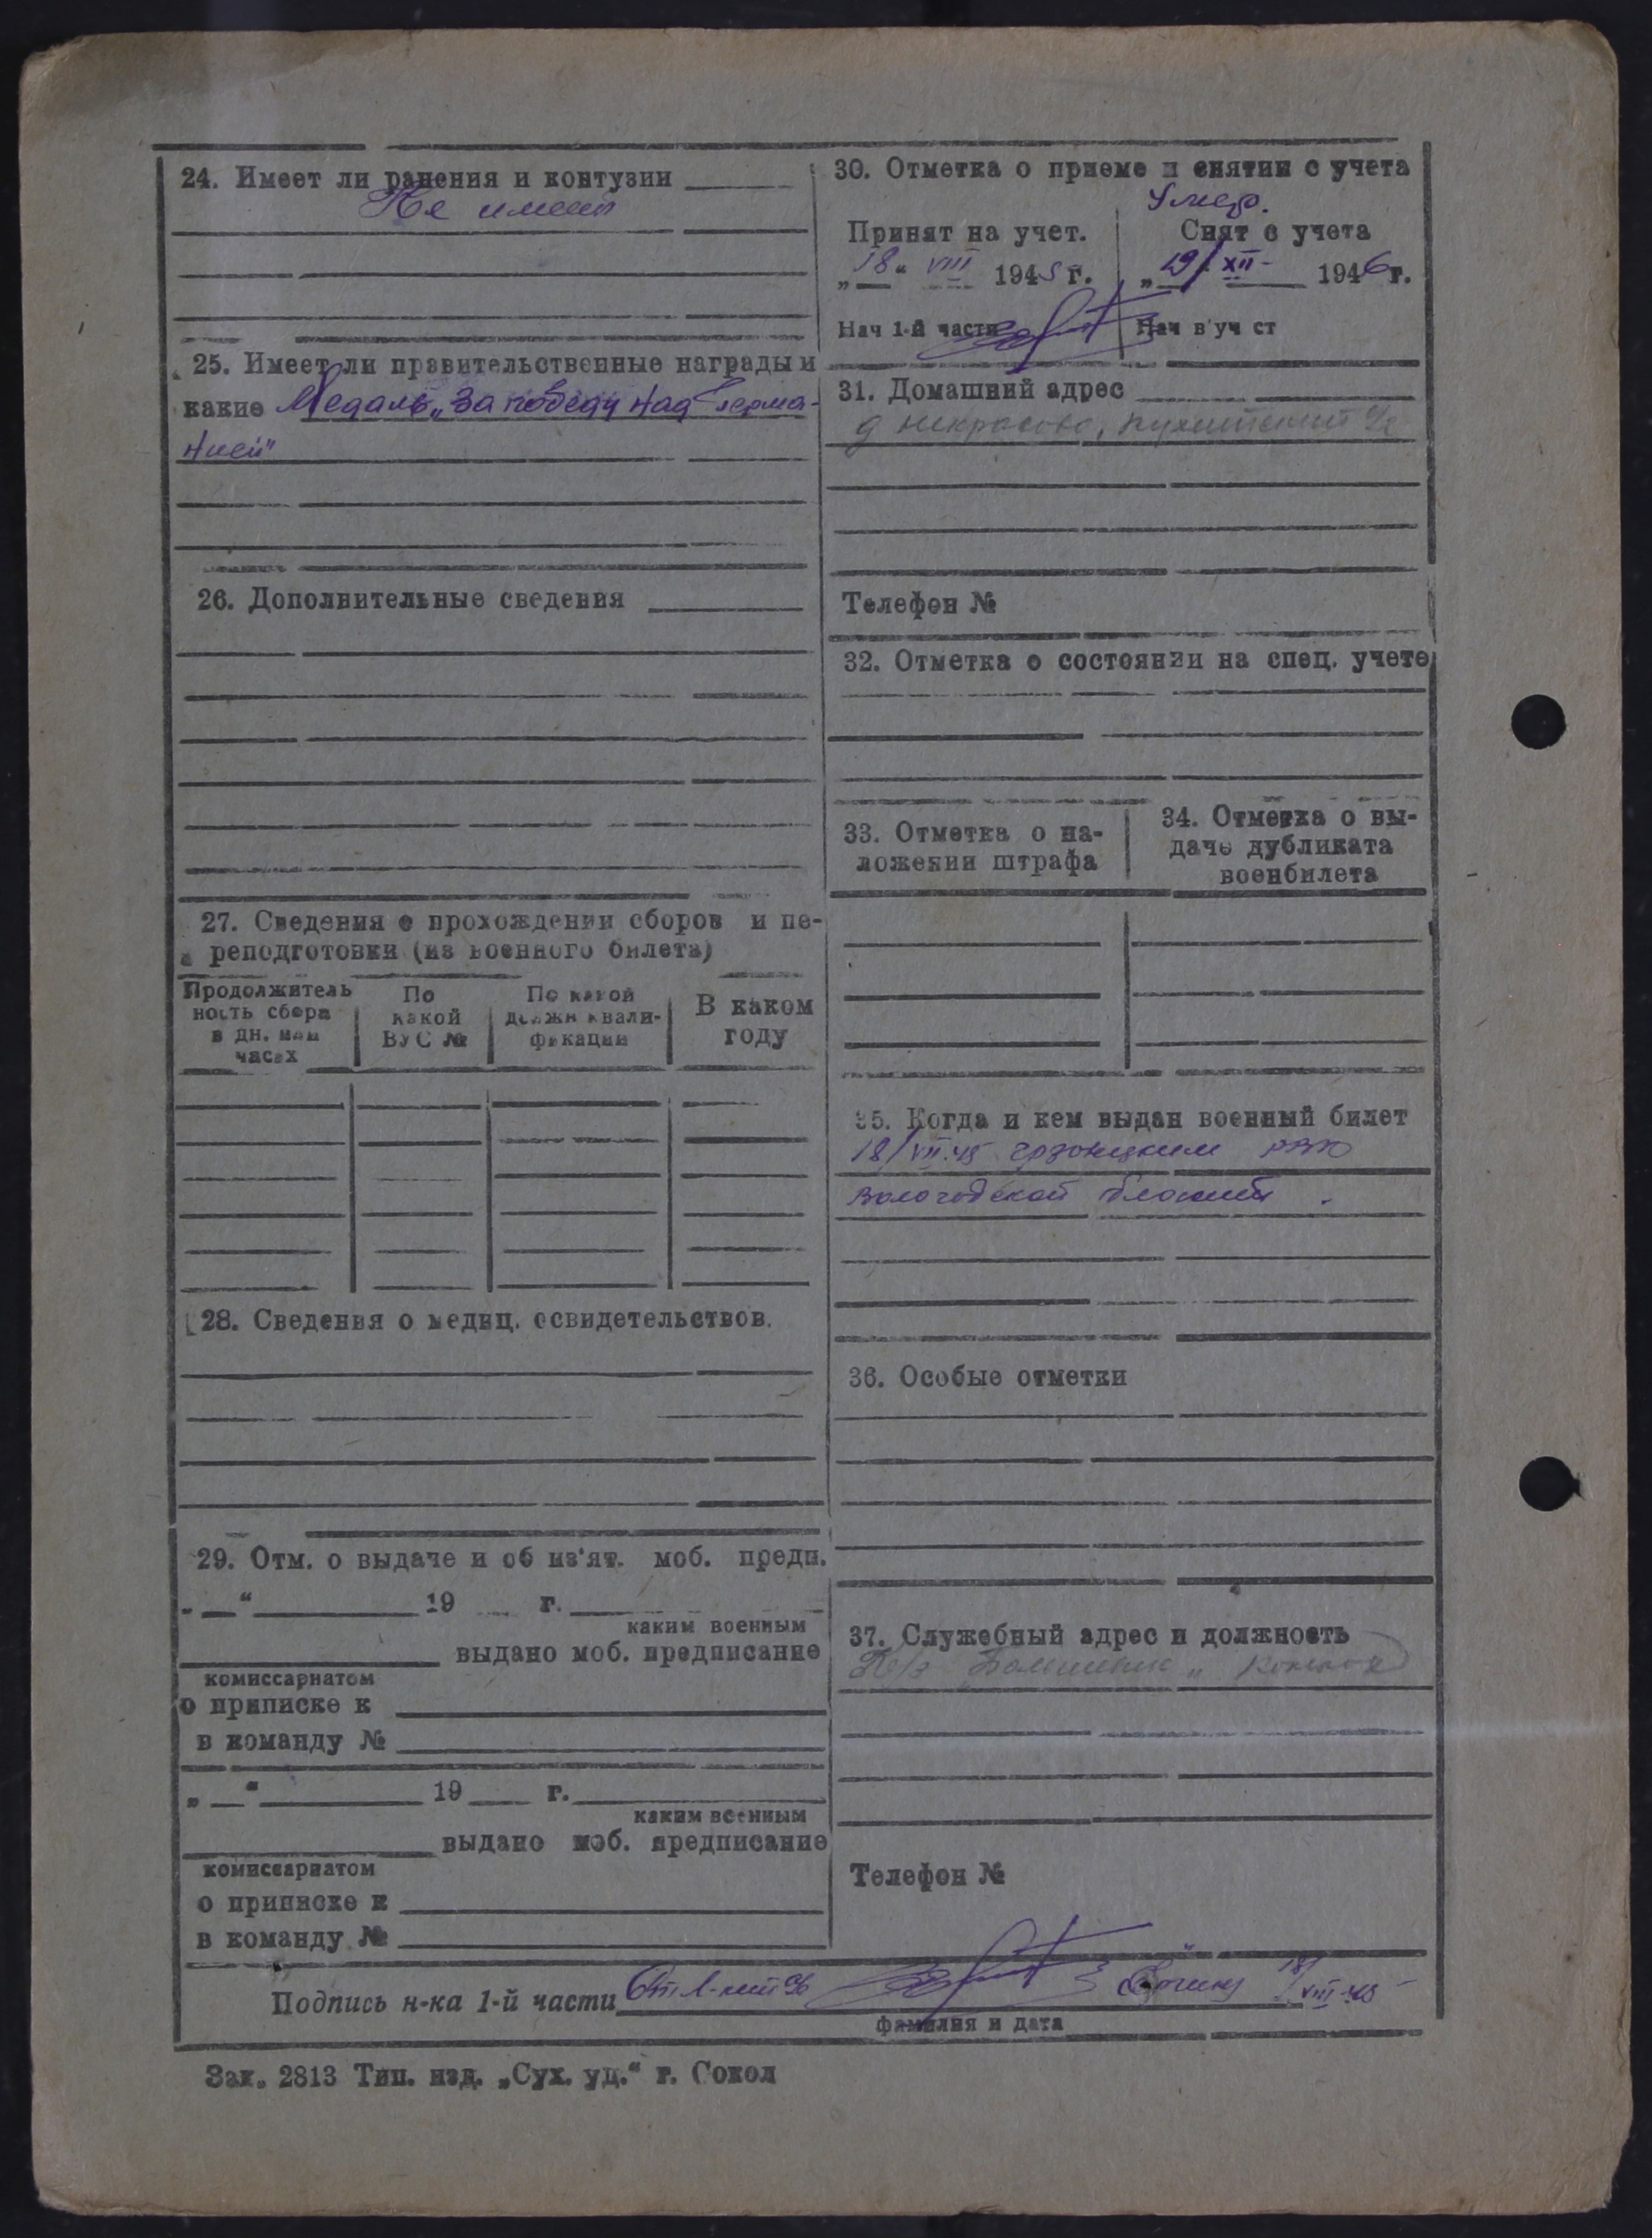 24. Имеет ли ранения и контузии
Не имеет
25. Имеет ли правительственные награды и
какие Медаль „За победу над Герма-
нией"
26. Дополнительные сведения
27. Сведения о прохождении сборов и пе-
реподготовки (из военного билета)
Продолжитель
ность сбора
в дн. или
часах
По
какой
ВУС №
По какой
должн квали-
фикации
В каком
году
28. Сведения о медиц. освидетельствов.
29. Отм. о выдаче и об из'ят. моб. предп.
„ “ 19 г.
каким военным
выдано моб. предписание
комиссариатом
о приписке к
в команду №
„ “ 19 г.
каким военным
выдано моб. предписание
комиссариатом
о приписке к
в команду №
30. Отметка о приеме и снятии с учета
Умер.
Принят на учет.
„18“ VIII 1945 г.
Нач 1-й части
Снят с учета
„19/ XII- 1946 г.
Нач в уч ст
31. Домашний адрес
д Некрасово,
Телефон №
32. Отметка о состоянии на спец. учете
33. Отметка о на-
ложении штрафа
34. Отметка о вы-
даче дубликата
военбилета
35. Когда и кем выдан военный билет
18/VII.45 РВК
Вологодской области.
36. Особые отметки
37. Служебный адрес и должность
К/з
Телефон №
Подпись н-ка 1-й части Ст л-нт 18/VIII-45
фамилия и дата
Зак. 2813 Тип. изд. „Сух. уд.“ г. Сокол